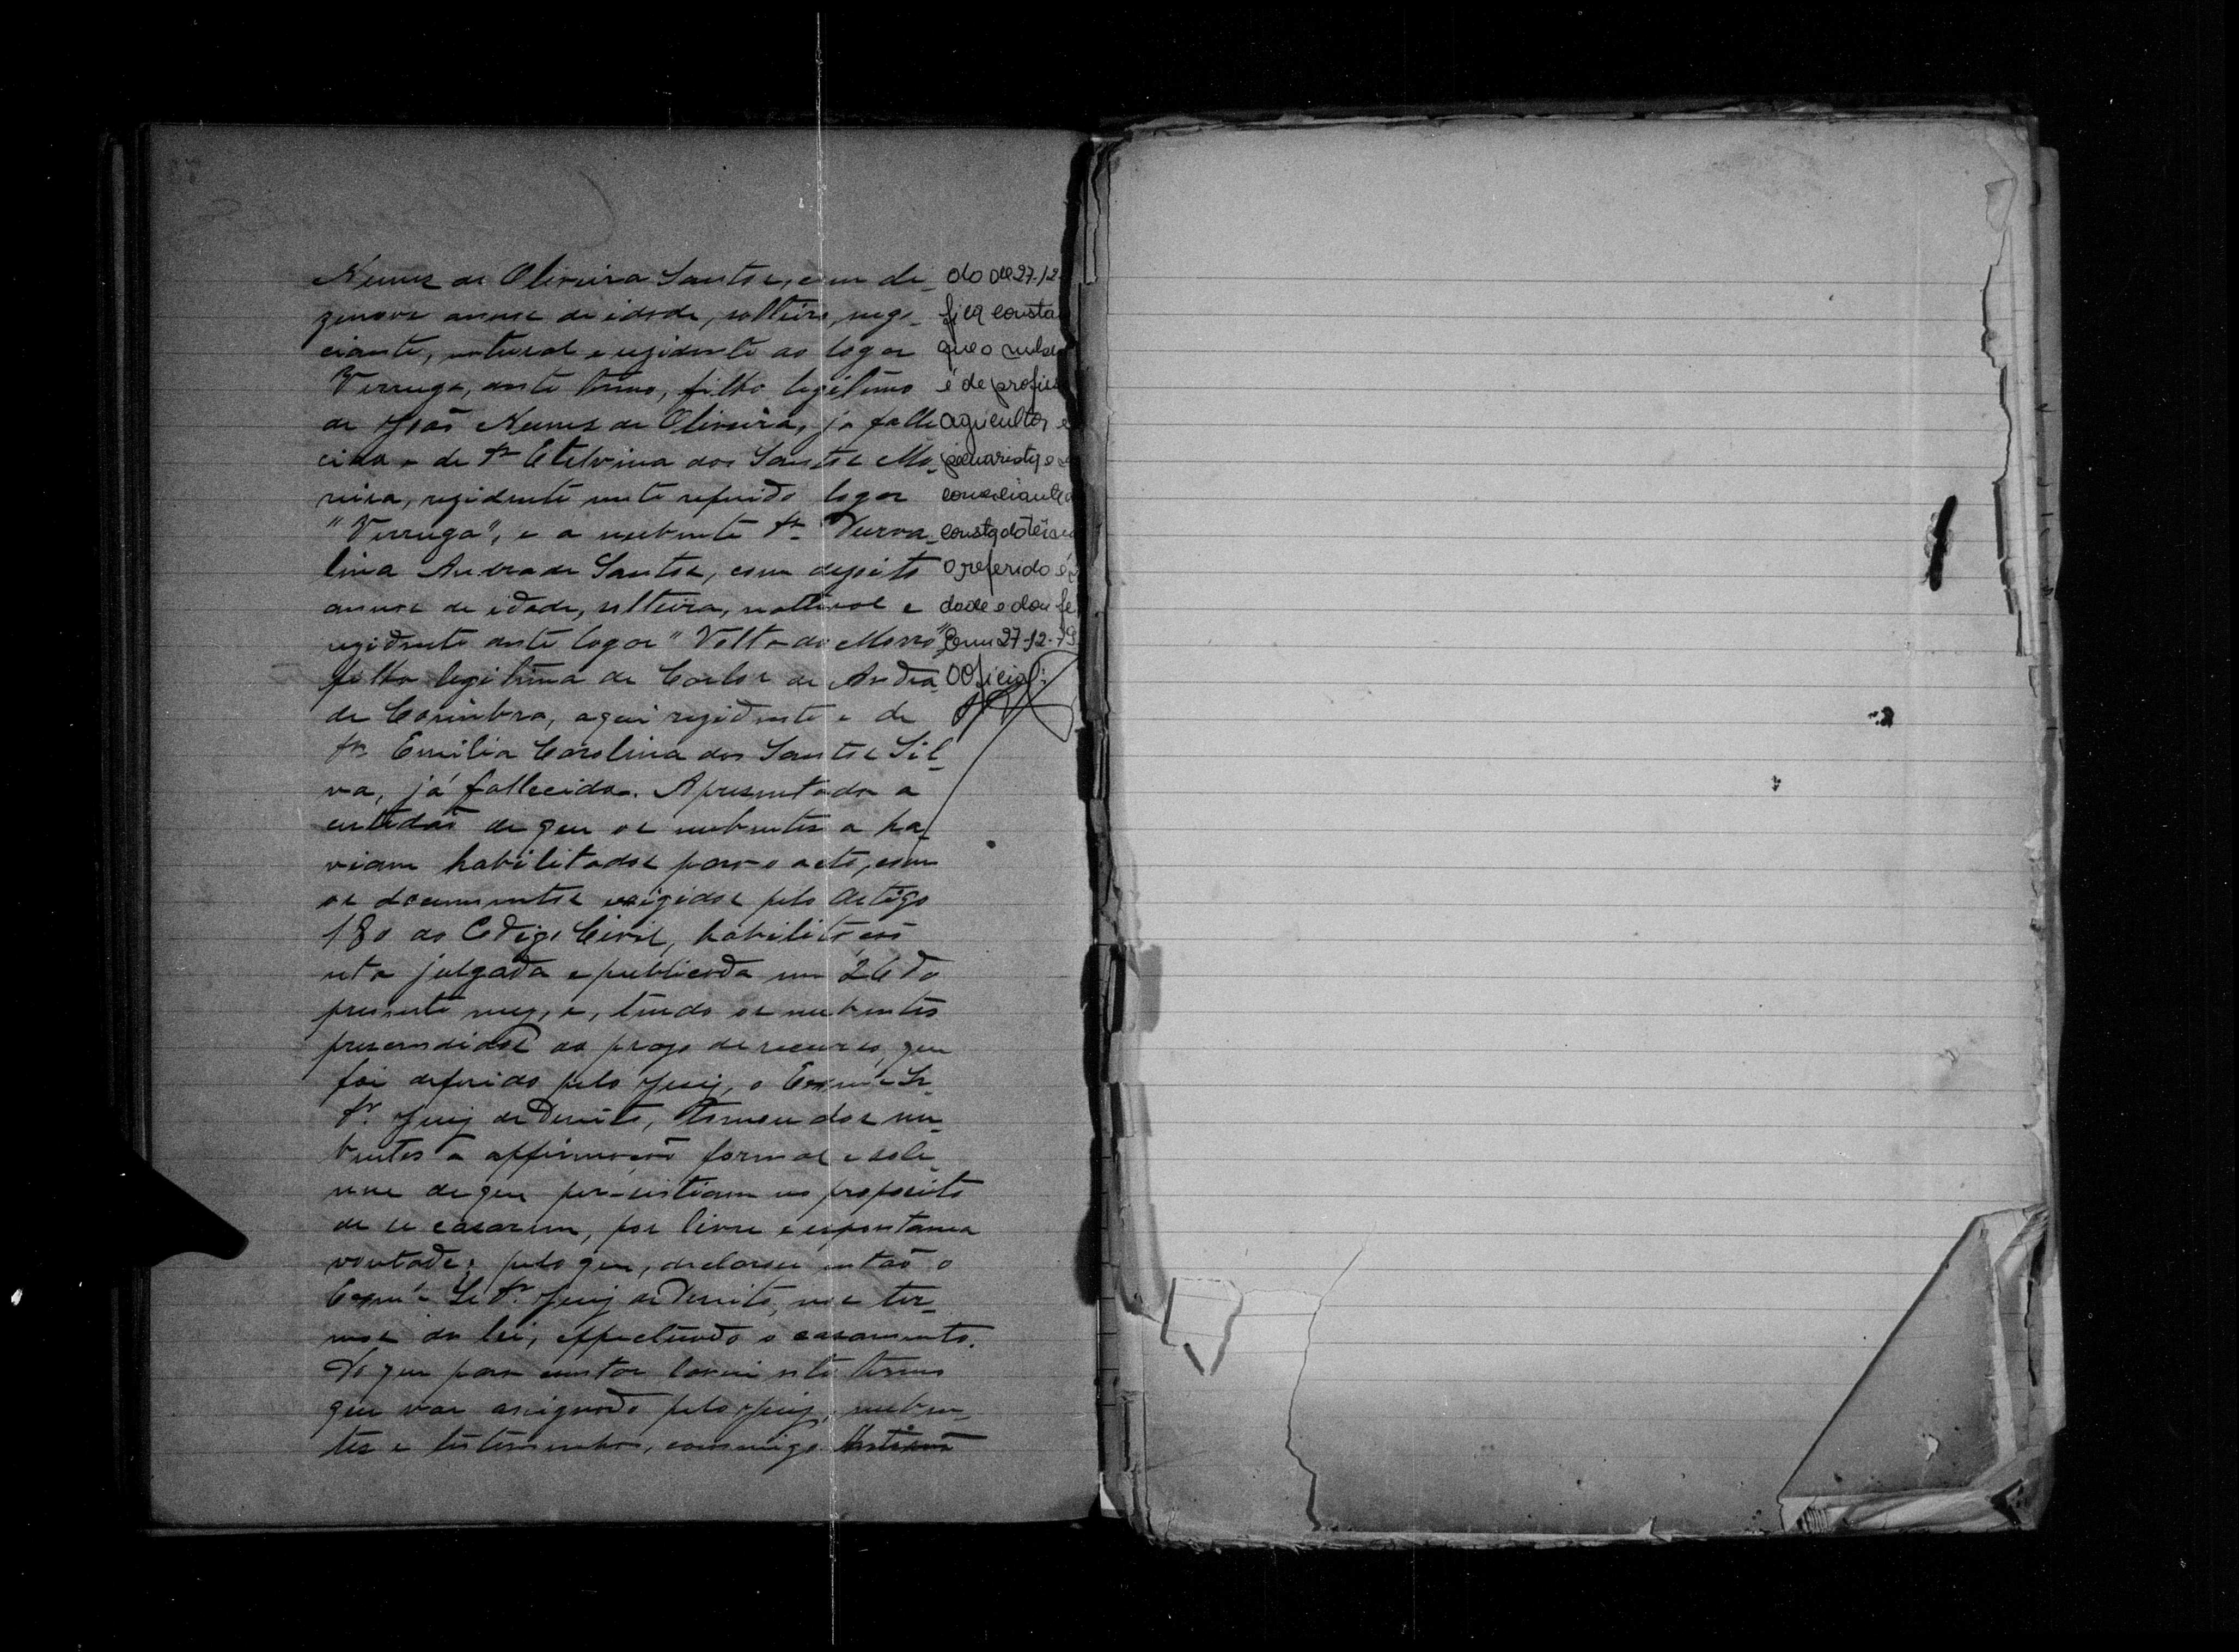 Nunes de Oliveira Santos, com de-
zenove annos de idade, solteiro, nego-
ciante, natural e rezidente ao logar
Verruga, deste termo, filho legitimo
de João Nunes de Oliveira, já falle-
cido e de Dª Etelvina dos Santos Mo-
reira, rezidente neste referido logar
"Verruga", e a nubente Dª Durva-
lina Andrade Santos, com dezoito
annos de idade, solteira, natural e
rezidente neste logar "Volta do Morro",
filha legitima de Carlos de Andra-
de Coimbra, aqui rezidente e de
Dª Emilia Carolina dos Santos Sil-
va, já fallecida. Apresentada a
certidão de que os nubentes a ha-
viam habilitados para o acto, com
os documentos exigidos pelo Artigo
180 do Codigo Civil, habilitação
esta julgada e publicada em 26 do
presente mez, e, tendo os nubentes
prescindidos do prazo de recurso, que
foi deferido pelo Juiz, o Exmº Sr.
Dr. Juiz de Direito, tomou dos nu-
bentes a affirmação formal e sole-
nne de que persistiam no proposito
de se casarem, por livre e espontanea
vontade; pelo que, declarou então o
Exmº Sr Dr. Juiz de Direito, nos ter-
mos da lei, effectuado o casamento.
Do que para constar lavrei este termo
que vae assignado pelo Juiz, nuben-
tes e testemunhas, commigo
do de 27-12
fica consta
que o
é de profis
agricultor e
pecuarista e
comerciante
consta do têrmo
O referido é
dade e dou fé
Em 27-12-79
O Oficial: